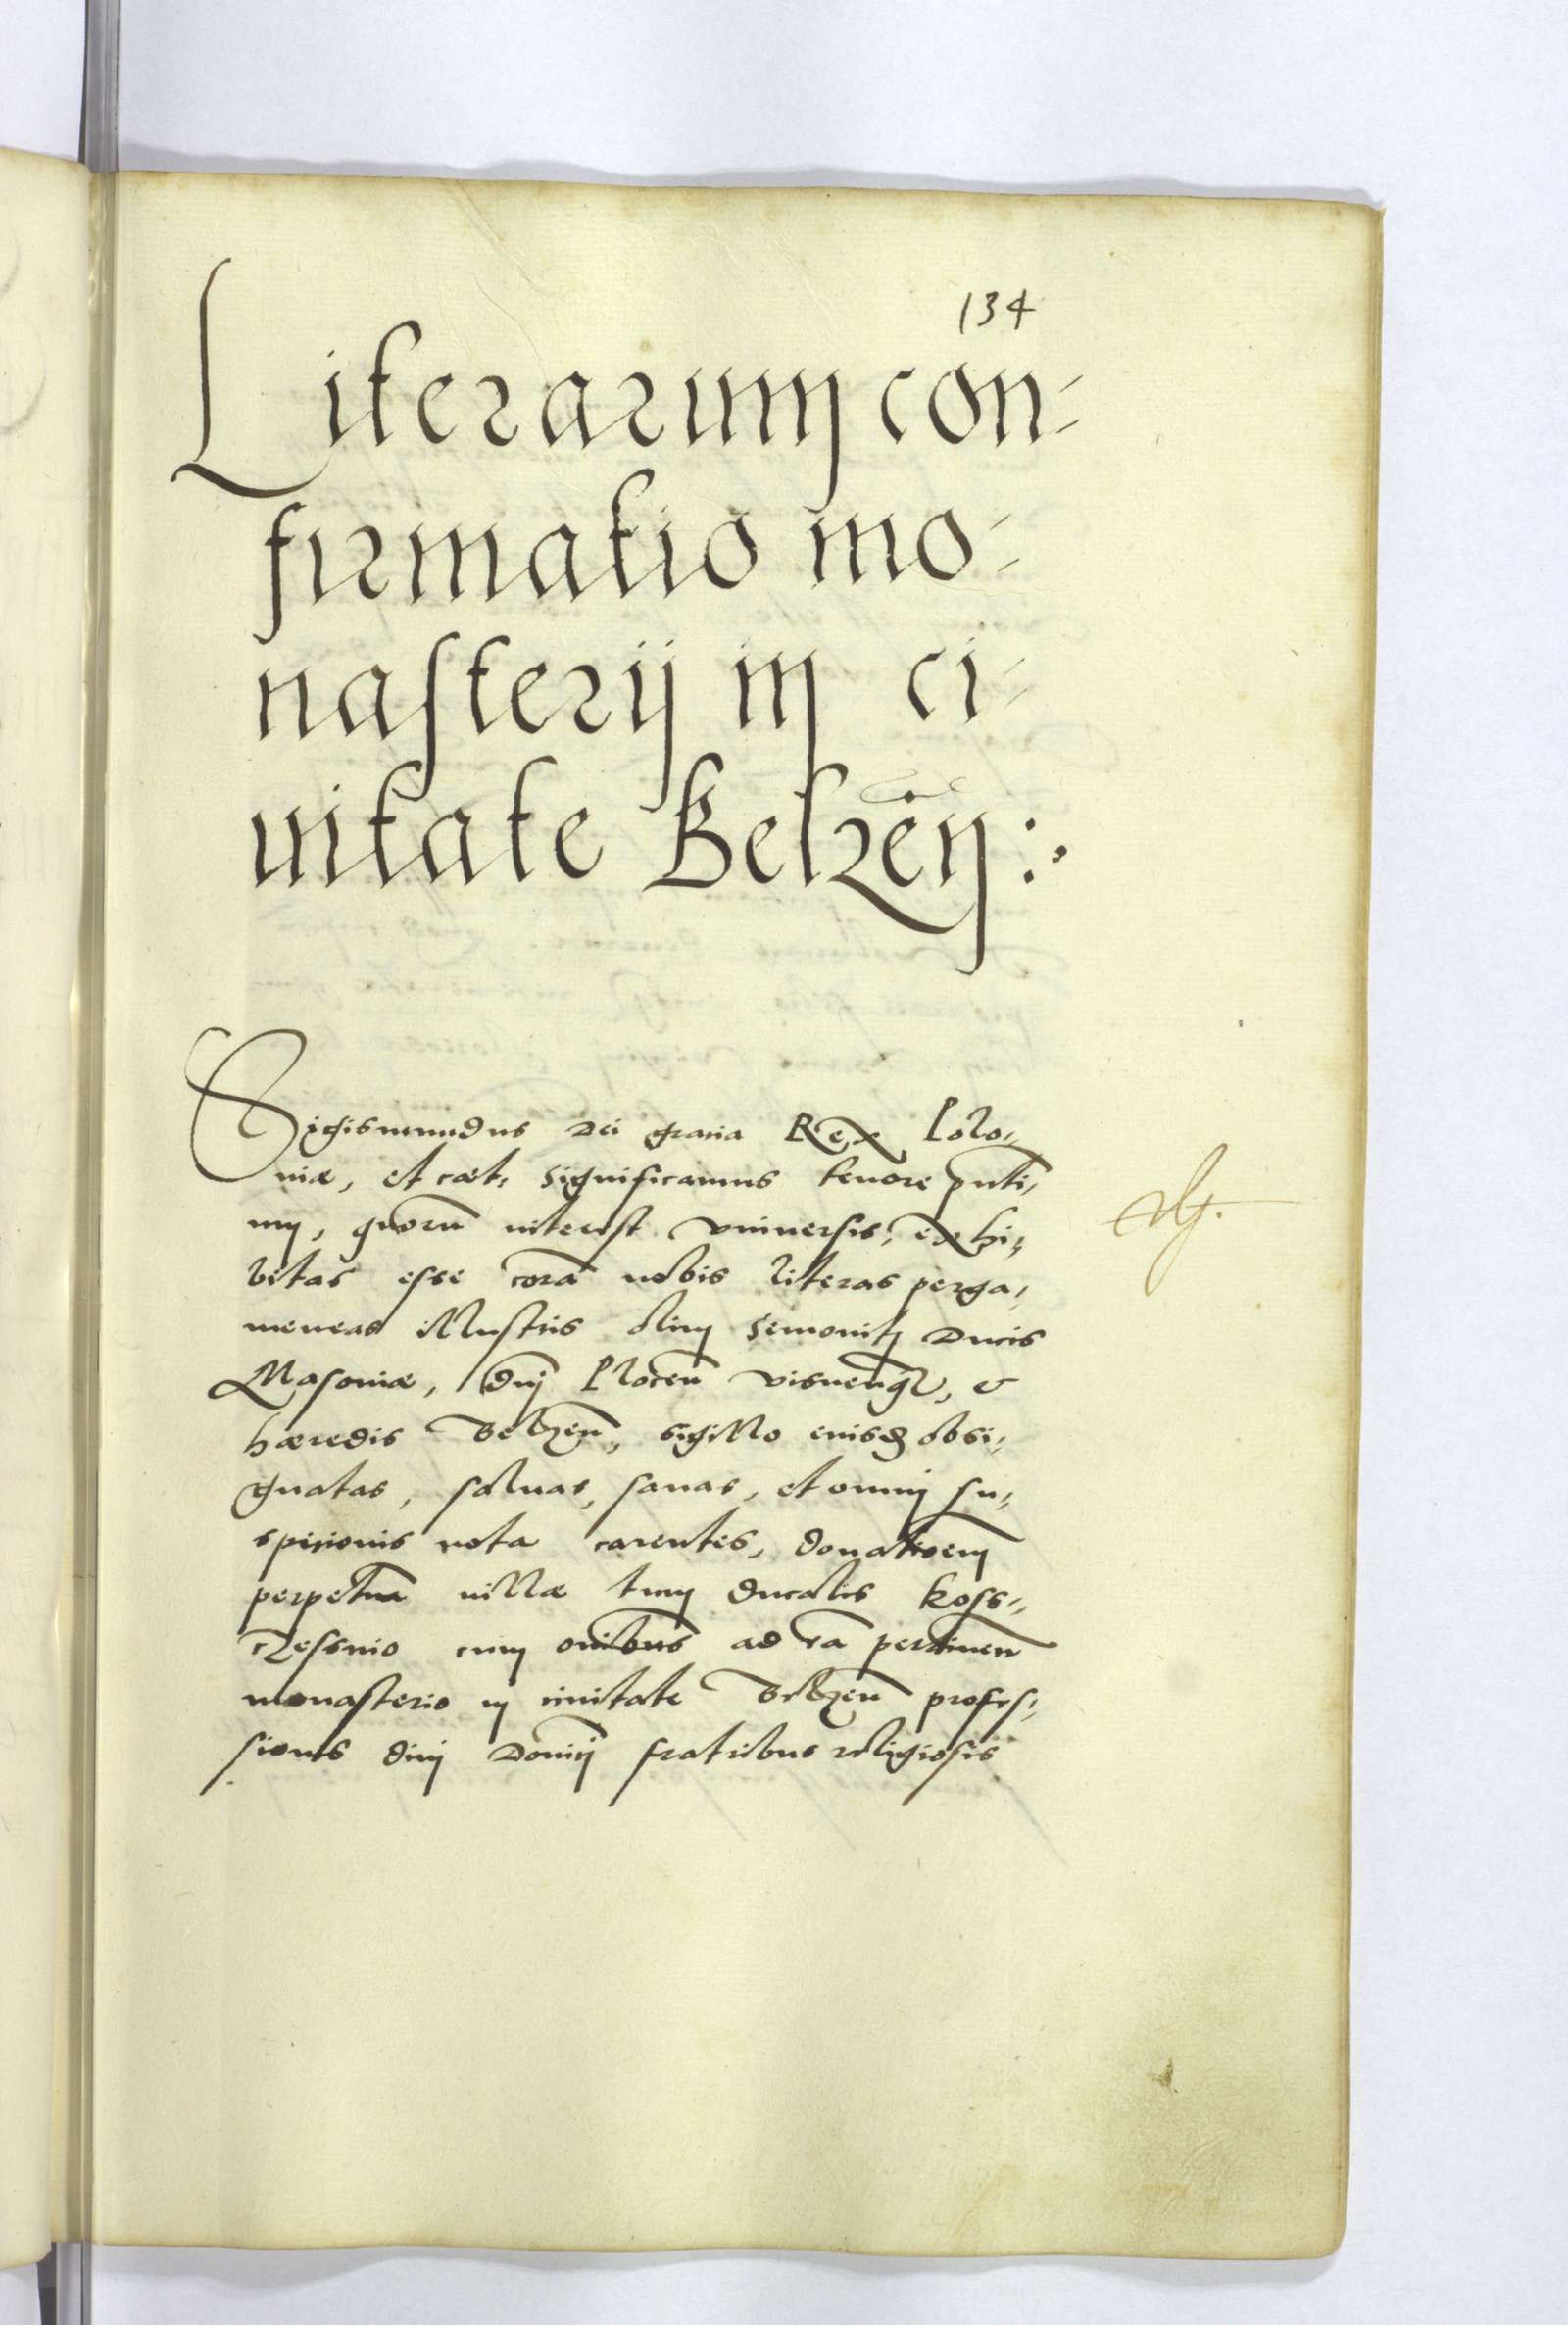 134
Literarum con-
firmatio mo-
nasterij in ci-
uitate Belzen̄:
Sigismundus Dei gratia Rex Polo-
niæ, et cæt, significamus tenore pn̄ti,
um, quorū interest vniuersis, exhi,
bitas esse corā nobis literas perga,
meneas illustris olim Semouiti Ducis
Masouiæ, dn̄j Plocen̄ visnen̄
hæredis Belzen̄, sigillo eiusd obsi,
gnatas, saluas, sanas, et omnj su,
spicionis nota carentes, donationem
perpetuā uillæ tum ducalis Koss,
czessuio cum oni̅bus ad eā pertinen̄
monasterio in ciuitate Belzen̄ profes,
sionis diuj Domi̅j fratribus religiosis